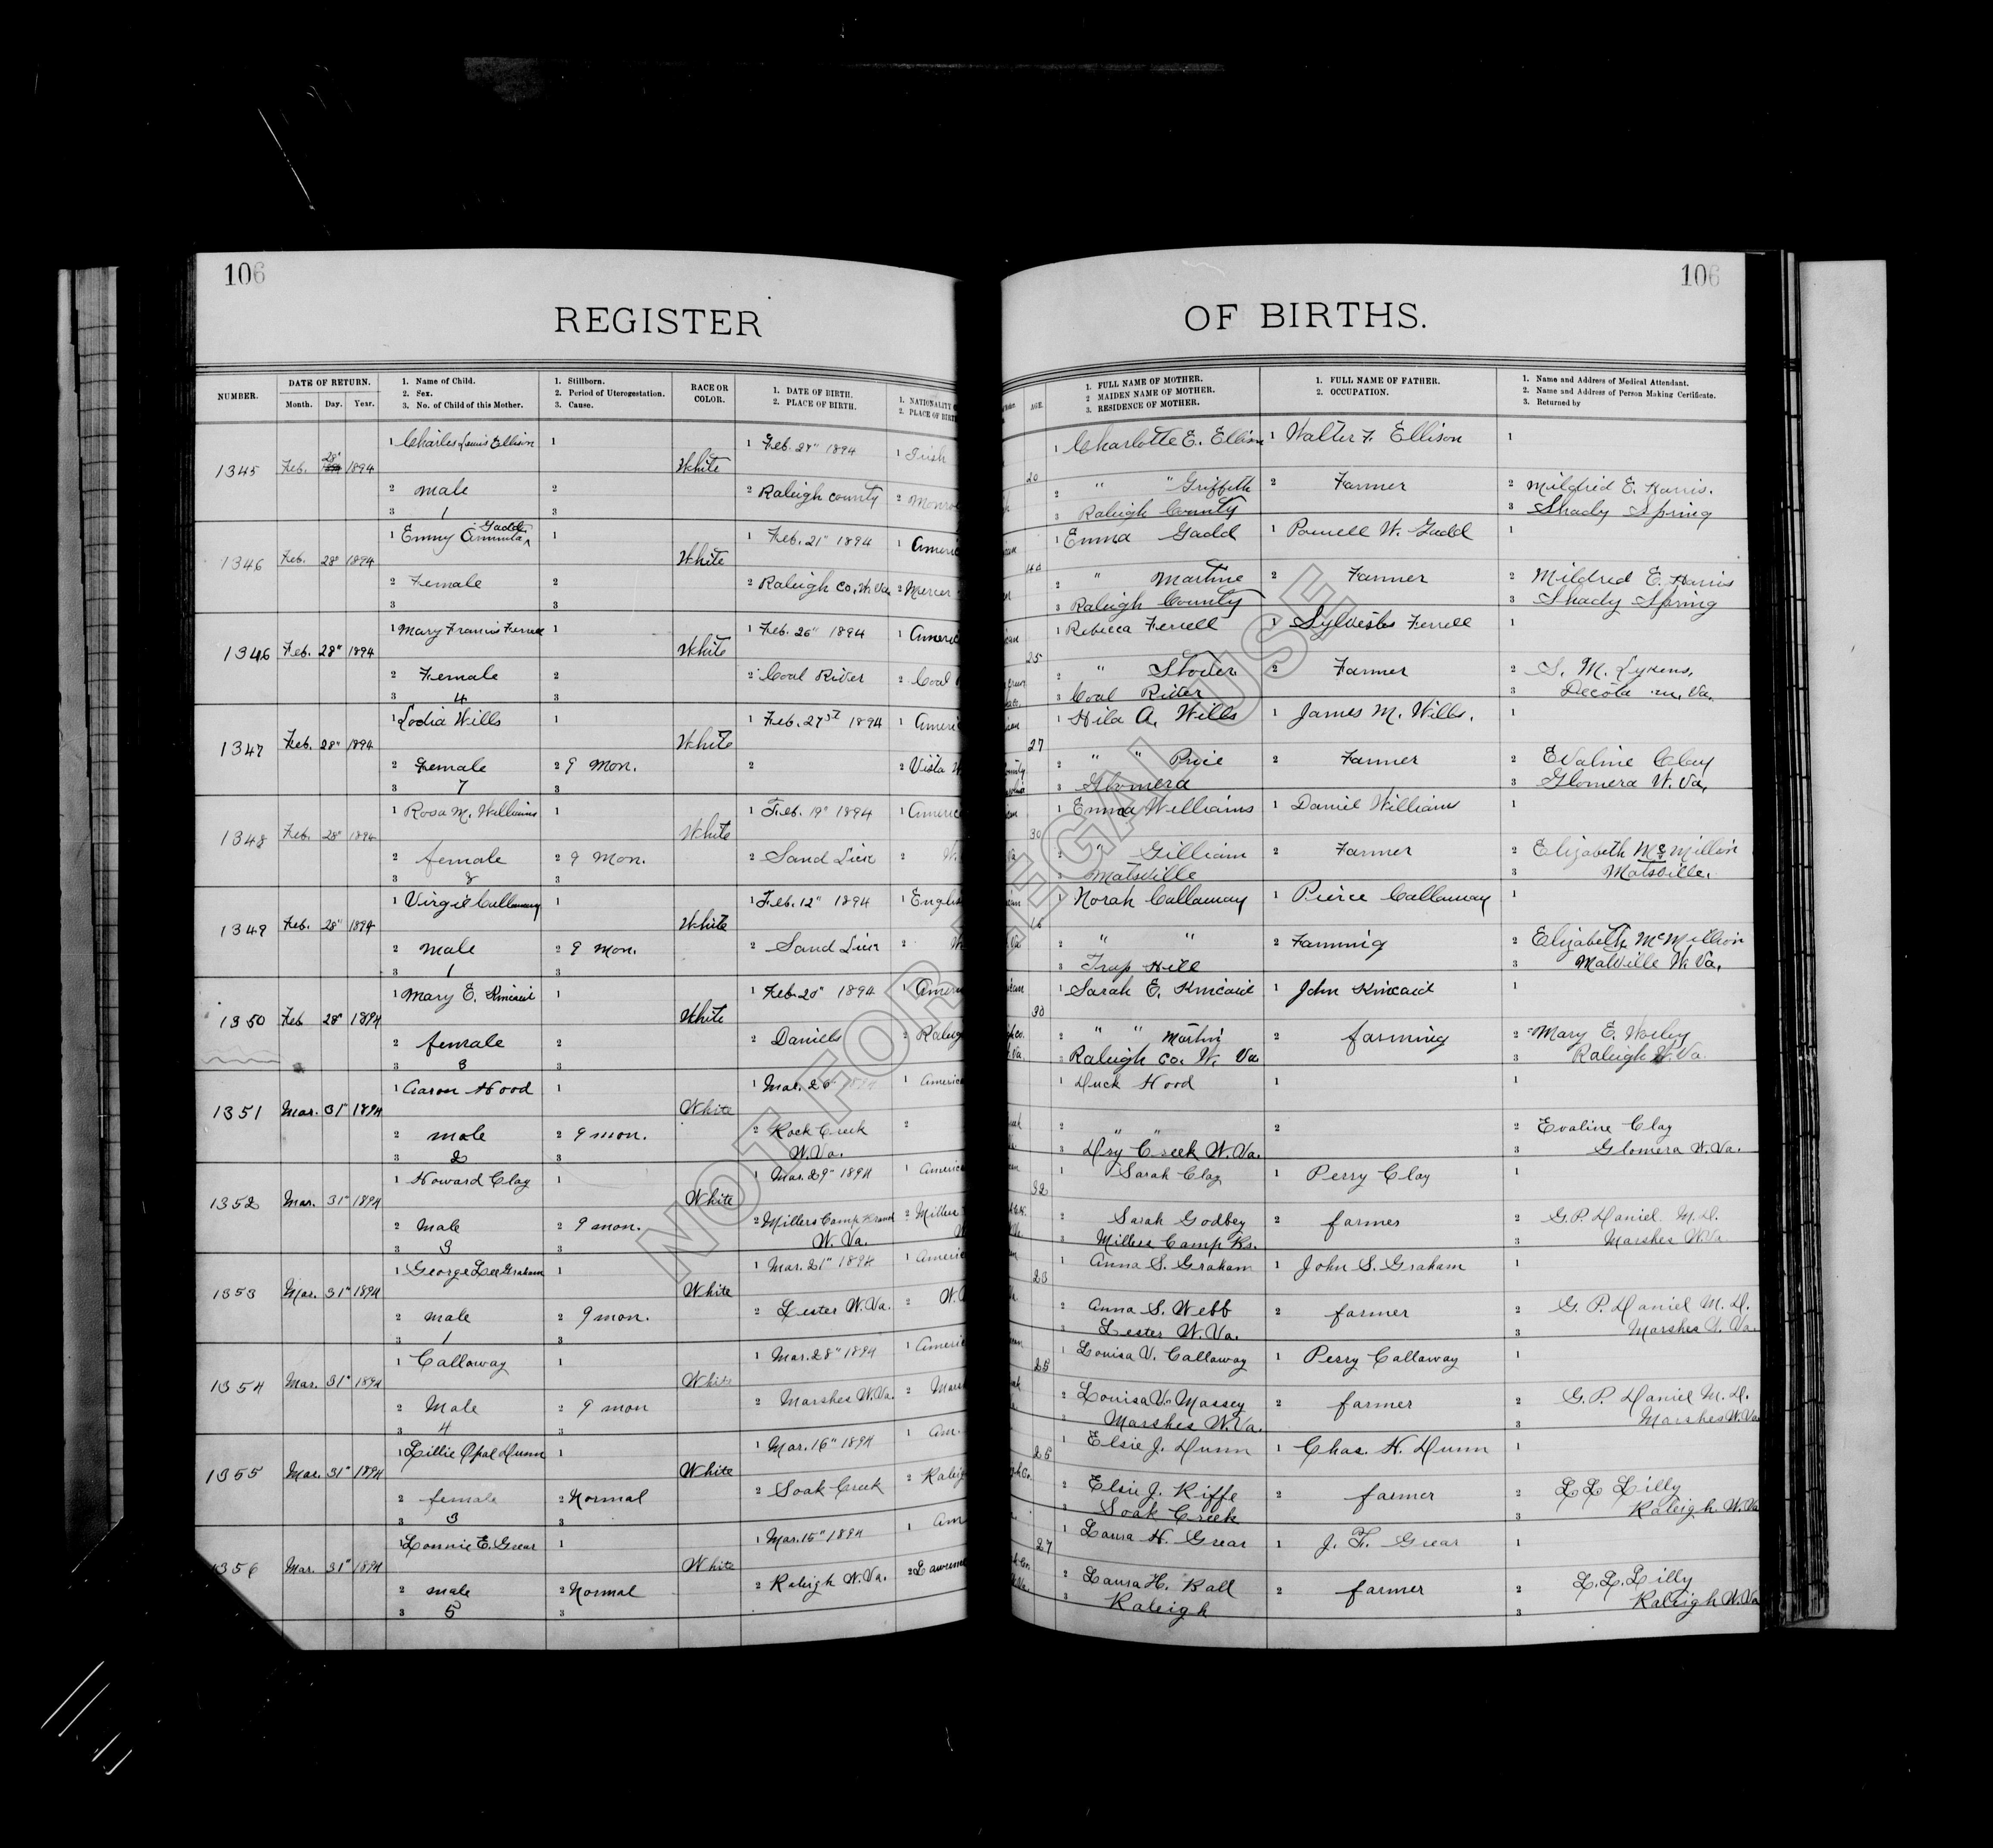 106
REGISTER
NUMBER.
DATE OF RETURN.
Month. Day. Year.
1. Name of Child.
2. Sex.
3. No. of Child of this Mother.
1. Stillborn.
2. Period of Uterogestation.
3. Cause.
RACE OR COLOR.
1. DATE OF BIRTH.
2. PLACE OF BIRTH.
1. NATIONALITY
2. PLACE OF BIRTH
1345 Feb. 28" 1894 1 Charles Lewis Ellison 1 White 1 Feb. 28" 1894 1 Irish
2 male 2 2 Raleigh County 2 Monroe
3 1 3
1346 Feb. 28" 1894 1 Emmy Gadd 1 White 1 Feb. 21" 1894 1 Americ
2 Female 2 2 Raleigh Co. W. Va. 2 Mercer
3 3
1346 Feb. 28" 1894 1 Mary Francis Ferrell 1 White 1 Feb. 26" 1894 1 Americ
2 Female 2 2 Coal River 2 Coal
3 4 3
1347 Feb. 28" 1894 1 Wills 1 White 1 Feb. 27st 1894 1 Americ
2 Female 2 9 Mon. 2 2 Vista
3 7 3
1348 Feb. 28" 1894 1 Rosa M. Williams 1 White 1 Feb. 19" 1894 1 Americ
2 female 2 9 Mon. 2 Sand Lick 2 W.
3 8 3
1349 Feb. 28" 1894 1 Virgil Callaway 1 White 1 Feb. 12" 1894 1 Englis
2 male 2 9 Mon. 2 Sand Lick 2 W
3 1 3
1350 Feb 28" 1894 1 Mary E. Kincaid 1 White 1 Feb. 20" 1894 1 Americ
2 female 2 2 Daniels 2 Raleig
3 3 3
1351 Mar. 31" 1894 1 Aaron Hood 1 White 1 Mar. 26" 1894 1 America
2 male 2 9 mon. 2 Rock Creek W. Va. 2
3 2 3
1352 Mar. 31" 1894 1 Howard Clay 1 White 1 Mar. 29" 1894 1 America
2 Male 2 9 mon. 2 Millers Camp Branch W. Va. 2 Miller
3 3 3
1353 Mar. 31" 1894 1 George Lee Graham 1 White 1 Mar. 21" 1894 1 Americ
2 male 2 9 mon. 2 Lester W. Va. 2 W.
3 1 3
1354 Mar. 31" 1894 1 Callaway 1 White 1 Mar. 28" 1894 1 Americ
2 Male 2 9 mon 2 Marshes W. Va. 2 Marsh
3 4 3
1355 Mar. 31" 1894 1 Lillie Opal Dunn 1 White 1 Mar. 16" 1894 1 Am.
2 female 2 Normal 2 Soak Creek 2 Raleig
3 3 3
1356 Mar. 31" 1894 1 Lonnie E. Grear 1 White 1 Mar. 15" 1894 1 Am
2 male 2 Normal 2 Raleigh W. Va. 2 Lawrence
3 5 3
106
OF BIRTHS.
AGE.
1. FULL NAME OF MOTHER.
2 MAIDEN NAME OF MOTHER.
3. RESIDENCE OF MOTHER.
1. FULL NAME OF FATHER.
2. OCCUPATION.
1. Name and Address of Medical Attendant.
2. Name and Address of Person Making Certificate.
3. Returned by
20 1 Charlotte E. Ellison 1 Walter F. Ellison 1
2 " " Griffith 2 Farmer 2 Mildred E. Harris.
3 Raleigh County 3 Shady Spring
40 1 Emma Gadd 1 Powell W. Gadd 1
2 " Martine 2 Farmer 2 Mildred E. Harris
3 Raleigh County 3 Shady Spring
25 1 Rebecca Ferrell 1 Sylvester Ferrell 1
2 " Stover 2 Farmer 2 S. M. Lykens,
3 Coal River 3 Decota W. Va.
27 1 Hila A. Wills 1 James M. Wills. 1
2 " " Price 2 Farmer 2 Evaline Clay
3 Glomera 3 Glomera W. Va.
30 1 Emma Williams 1 Daniel Williams 1
2 " Gilliam 2 Farmer 2 Elizabeth McMillin
3 Matsville 3 Matsville.
16 1 Norah Callaway 1 Pierce Callaway 1
2 " " 2 Farming 2 Elizabeth McMillion
3 Trap Hill 3 Matville W. Va.
30 1 Sarah E. Kincaid 1 John Kincaid 1
2 " " Martin 2 farming 2 Mary E. Worley
3 Raleigh Co. W. Va 3 Raleigh W. Va.
1 Duck Hood 1 1
2 " " 2 2 Evaline Clay
3 Dry Creek W. Va. 3 Glomera W. Va.
32 1 Sarah Clay 1 Perry Clay 1
2 Sarah Godbey 2 farmer 2 G. P. Daniel M. D.
3 Millers Camp Br. 3 Marshes W. Va
23 1 Anna S. Graham 1 John S. Graham 1
2 Anna S. Webb 2 farmer 2 G. P. Daniel M. D.
3 Lester W. Va. 3 Marshes W. Va.
25 1 Louisa V. Callaway 1 Perry Callaway 1
2 Louisa V. Massey 2 farmer 2 G. P. Daniel M. D.
3 Marshes W. Va. 3 Marshes W. Va
25 1 Elsie J. Dunn 1 Chas. H. Dunn 1
2 Elsie J. Riffe 2 farmer 2 L L Lilly
3 Soak Creek 3 Raleigh W. Va
27 1 Laura H. Grear 1 J. F. Grear 1
2 Laura H. Ball 2 farmer 2 L. L. Lilly
3 Raleigh 3 Raleigh W. Va
NOT FOR LEGAL USE